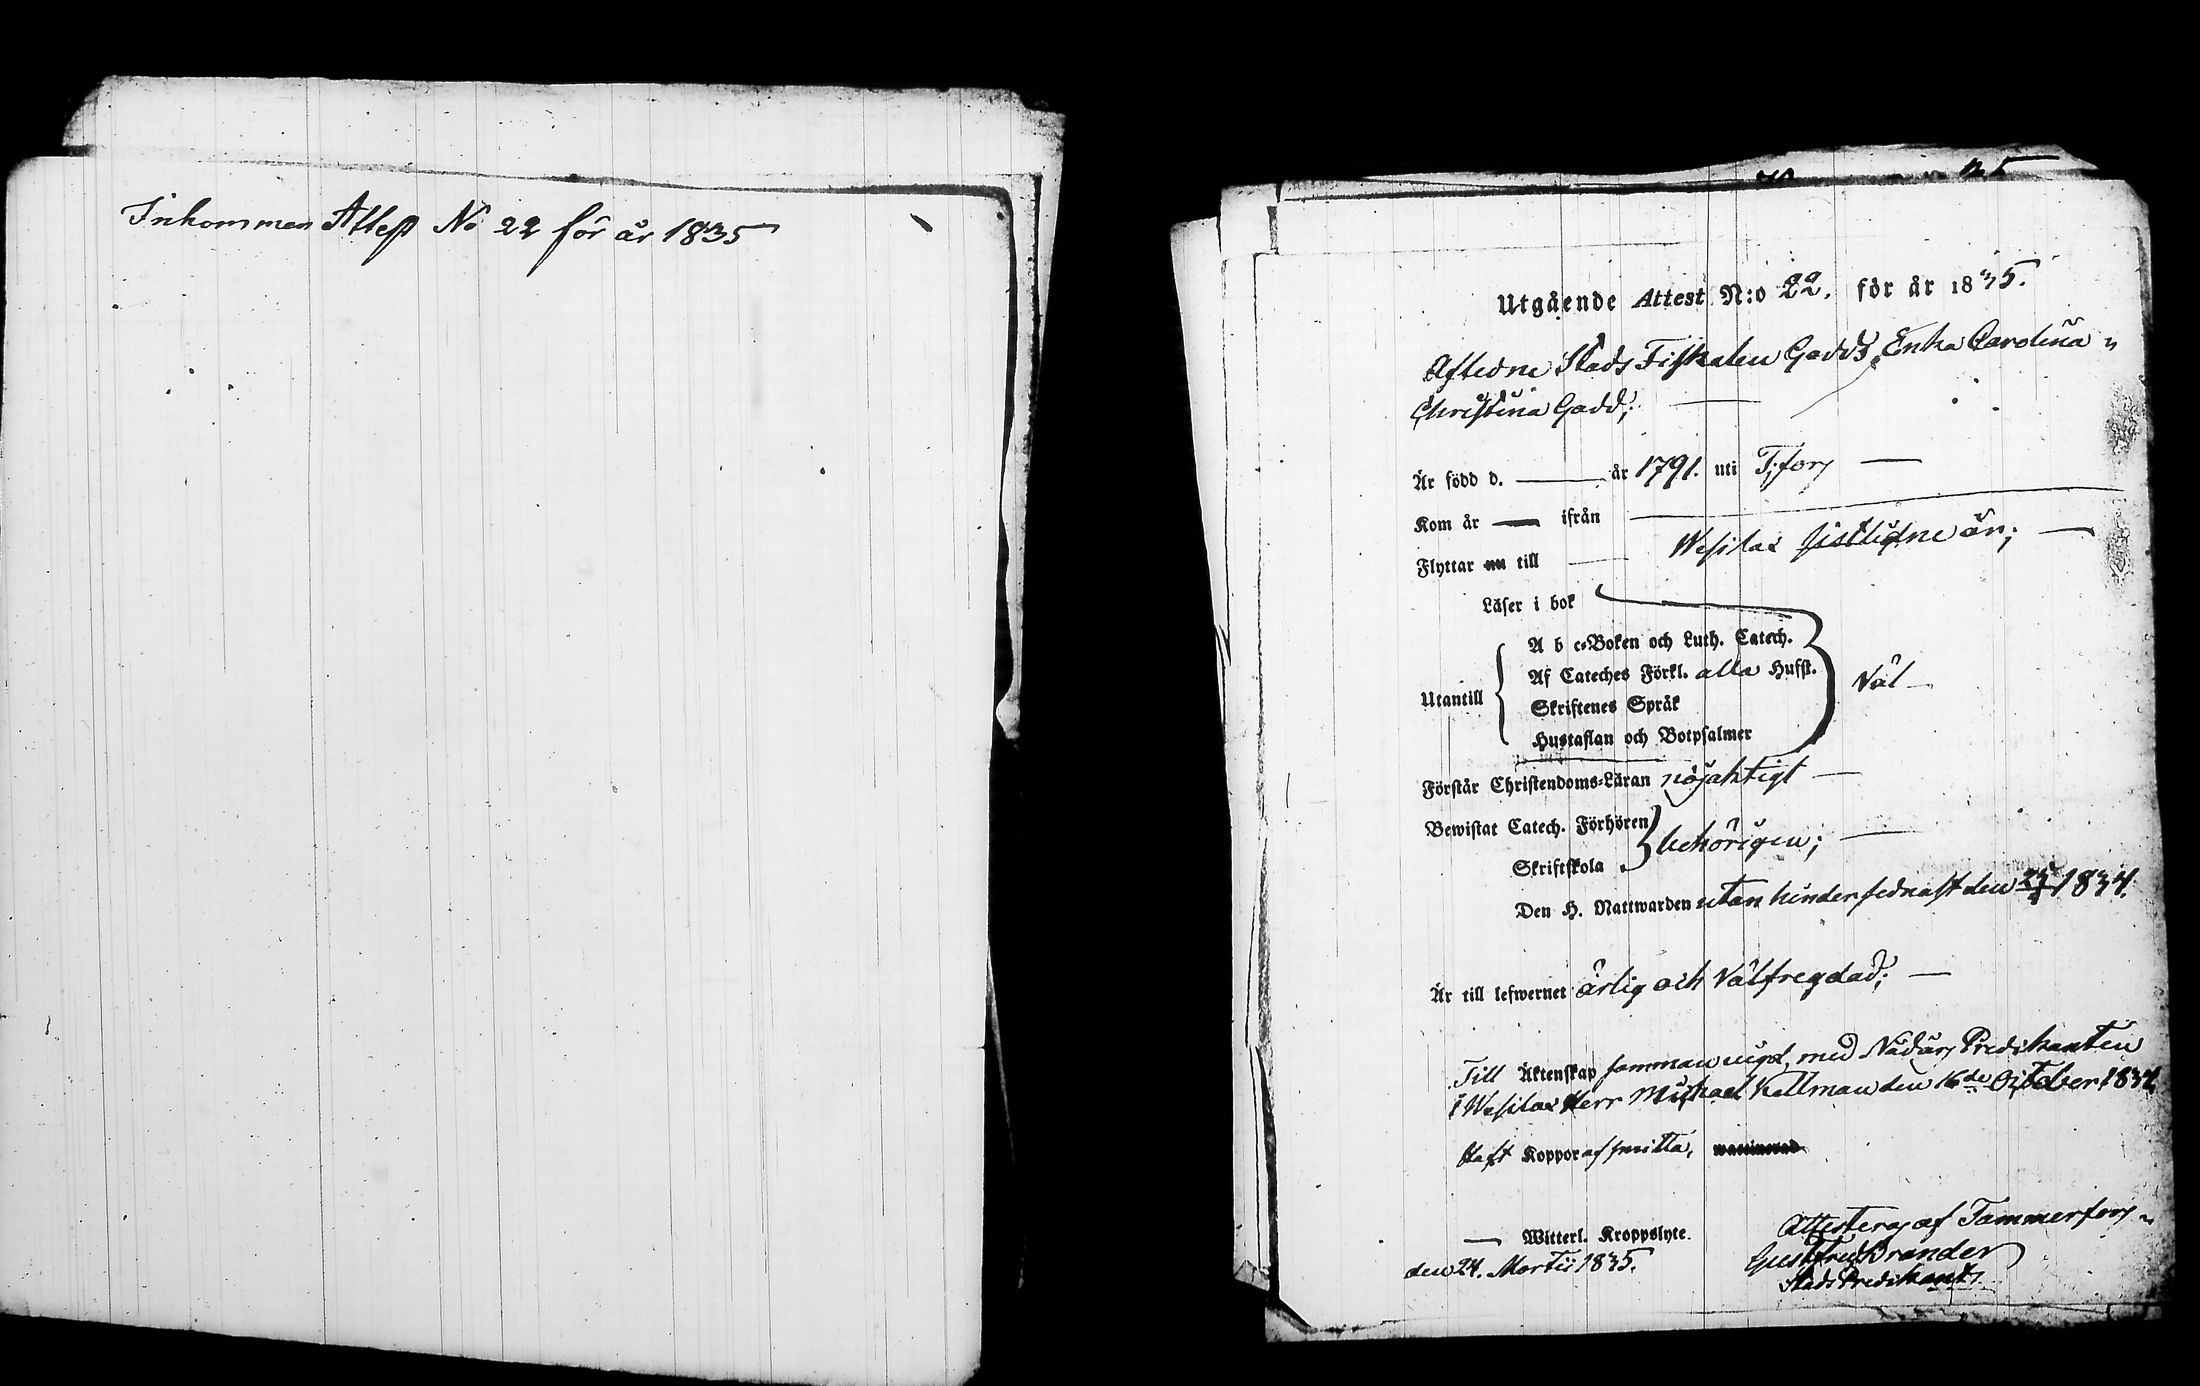 Inkommen Attest No 22 för år 1835
Utgående Attest N:o 22. för år 1835.
Afledne Stads Fiskalen Gadds Enka Carolina
Christina Gadd;
Är född d. — år 1791. uti T;fors —
Kom år — ifrån —
Flyttar nu till — Wesilax sistledne år; —
Läser i bok
Utantill
A b c-Boken och Luth. Catech.
Af Cateches Förkl. alla Hufst.
Skriftenes Språk
Hustaflan och Botpsalmer
Väl —
Förstår Christendoms-Läran nöjaktigt —
Bewistat Catech. Förhören
Skriftskola
behörigen; —
Den H. Nattwarden utan hinder sednast den 1834.
Är till lefwernet ärlig och Välfregdad; —
Till Äktenskap samman vigd, med Nådårs Predikanten
i Wesilax Herr Michael Kellman den 16de October 1834
Haft Koppor af smitta,
— Witterl. Kroppslyte.
den 24. Martii 1835.
Attesteras af Tammerfors
Gust. Fred. Brander
Stads Predikant